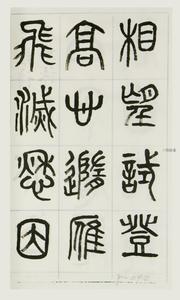 相望試登
高心隨雁
飛滅愁因